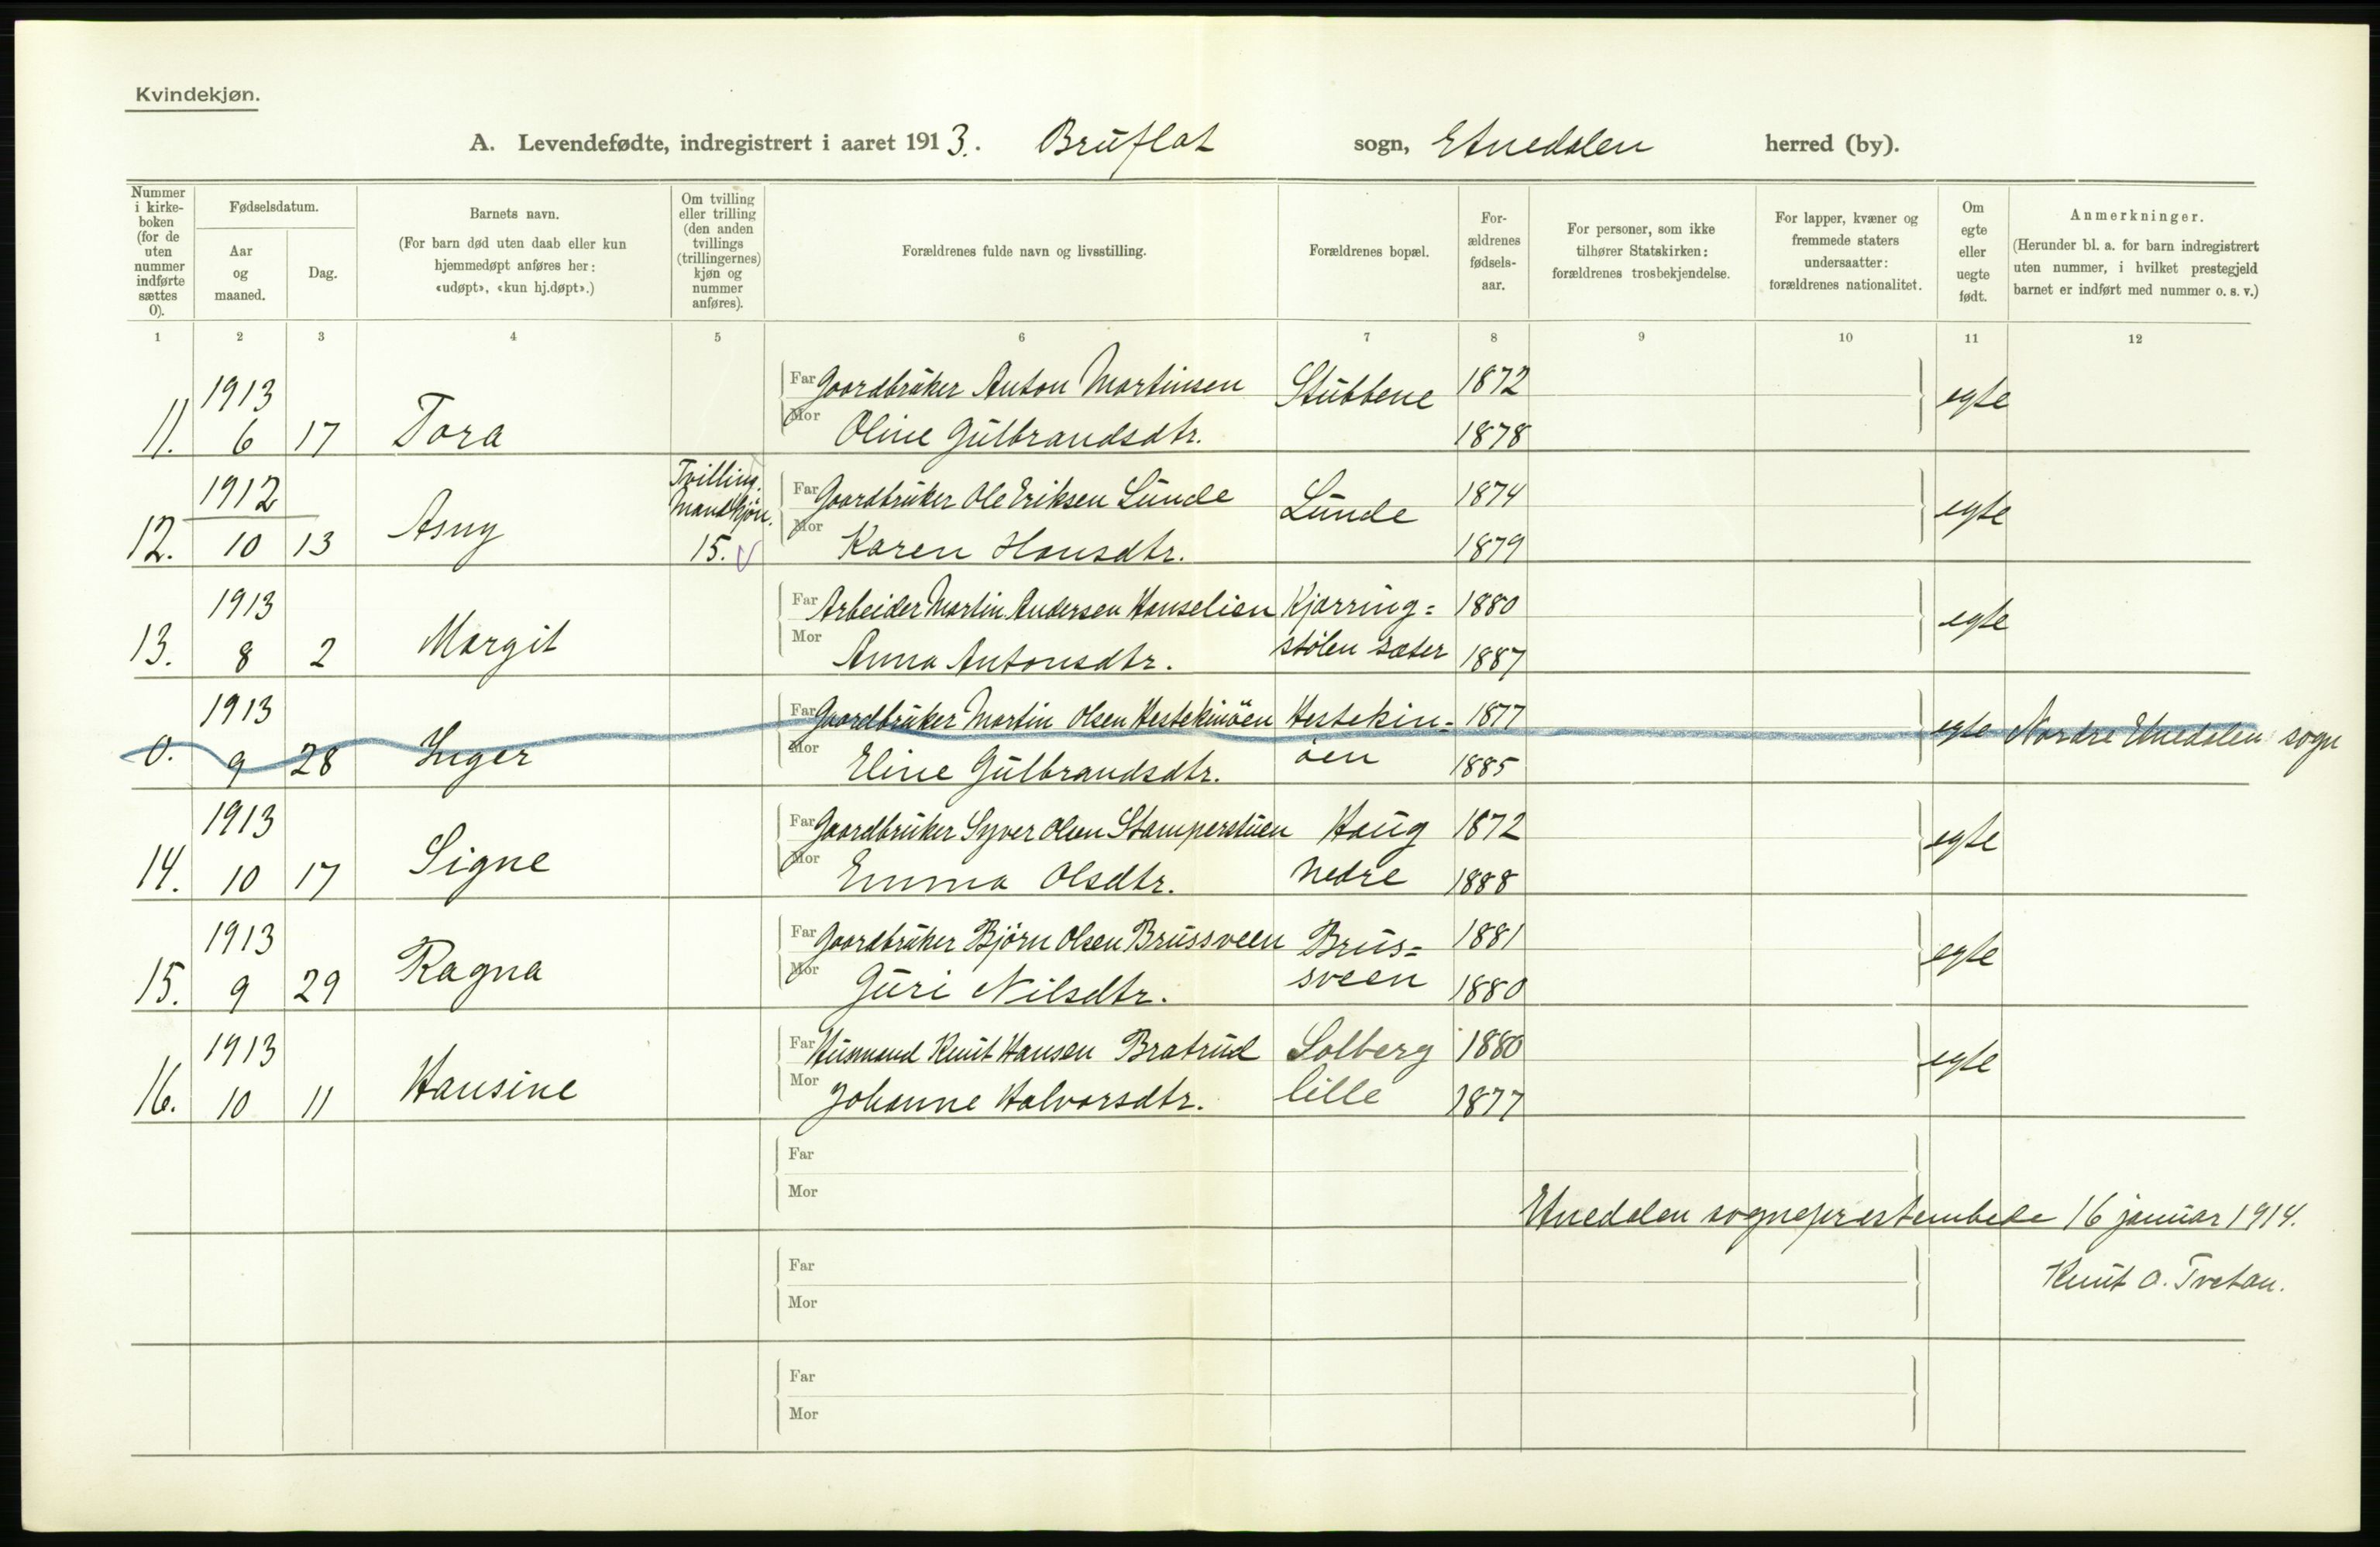 Kvindekjøn.
A. Levendefødte, indregistrert i aaret 1913. Bruflat sogn, Etnedalen herred (by).
Nummer i kirke-boken (for de uten nummer indførte sættes 0).
Fødselsdatum.
Aar og maaned.
Dag.
Barnets navn.
(For barn død uten daab eller kun hjemmedøpt anføres her: «udøpt», «kun hj.døpt».)
Om tvilling eller trilling (den anden tvillings (trillingernes) kjøn og nummer anføres).
Forældrenes fulde navn og livsstilling.
Forældrenes bopæl.
For-ældrenes fødsels-aar.
For personer, som ikke tilhører Statskirken: forældrenes trosbekjendelse.
For lapper, kvæner og fremmede staters undersaatter: forældrenes nationalitet.
Om egte eller uegte født.
Anmerkninger.
(Herunder bl. a. for barn indregistrert uten nummer, i hvilket prestegjeld barnet er indført med nummer o. s. v.)
1 2 3 4 5 6 7 8 9 10 11 12
1913 Far Gaardbruker Anton Martinsen Stubbene 1872 egte
11. 6 17 Tora Mor Oline Gulbrandsdtr. 1878
1912 Tvilling. Mandkjøn. Far Gaardbruker Ole Eriksen Lunde Lunde 1874 egte
12. 10 13 Asny 15. Mor Karen Hansdtr. 1879
1913 Far Arbeider Martin Andersen Hanselien Kjærring= 1880 egte
13. 8 2 Margit Mor Anna Antonsdtr. stølen sæter 1887
1913 Far Gaardbruker Martin Olsen Hestekinøen Hestekin= 1877 egte Nordre Etnedalen sogn
0. 9 28 Inger Mor Eline Gulbrandsdtr. øen 1885
1913 Far Gaardbruker Syver Olsen Stamperstuen Haug 1872 egte
14. 10 17 Signe Mor Emma Olsdtr. nedre 1888
1913 Far Gaardbruker Bjørn Olsen Brussveen Brus= 1881 egte
15. 9 29 Ragna Mor Guri Nilsdtr. sveen 1880
1913 Far Husmand Knut Hansen Bratrud Solberg 1880 egte
16. 10 11 Hansine Mor Johanne Halvorsdtr. lille 1877
Far
Mor
Etnedalen sogneprestembede 16 januar 1914.
Far
Knut O. Tvetan.
Mor
Far
Mor